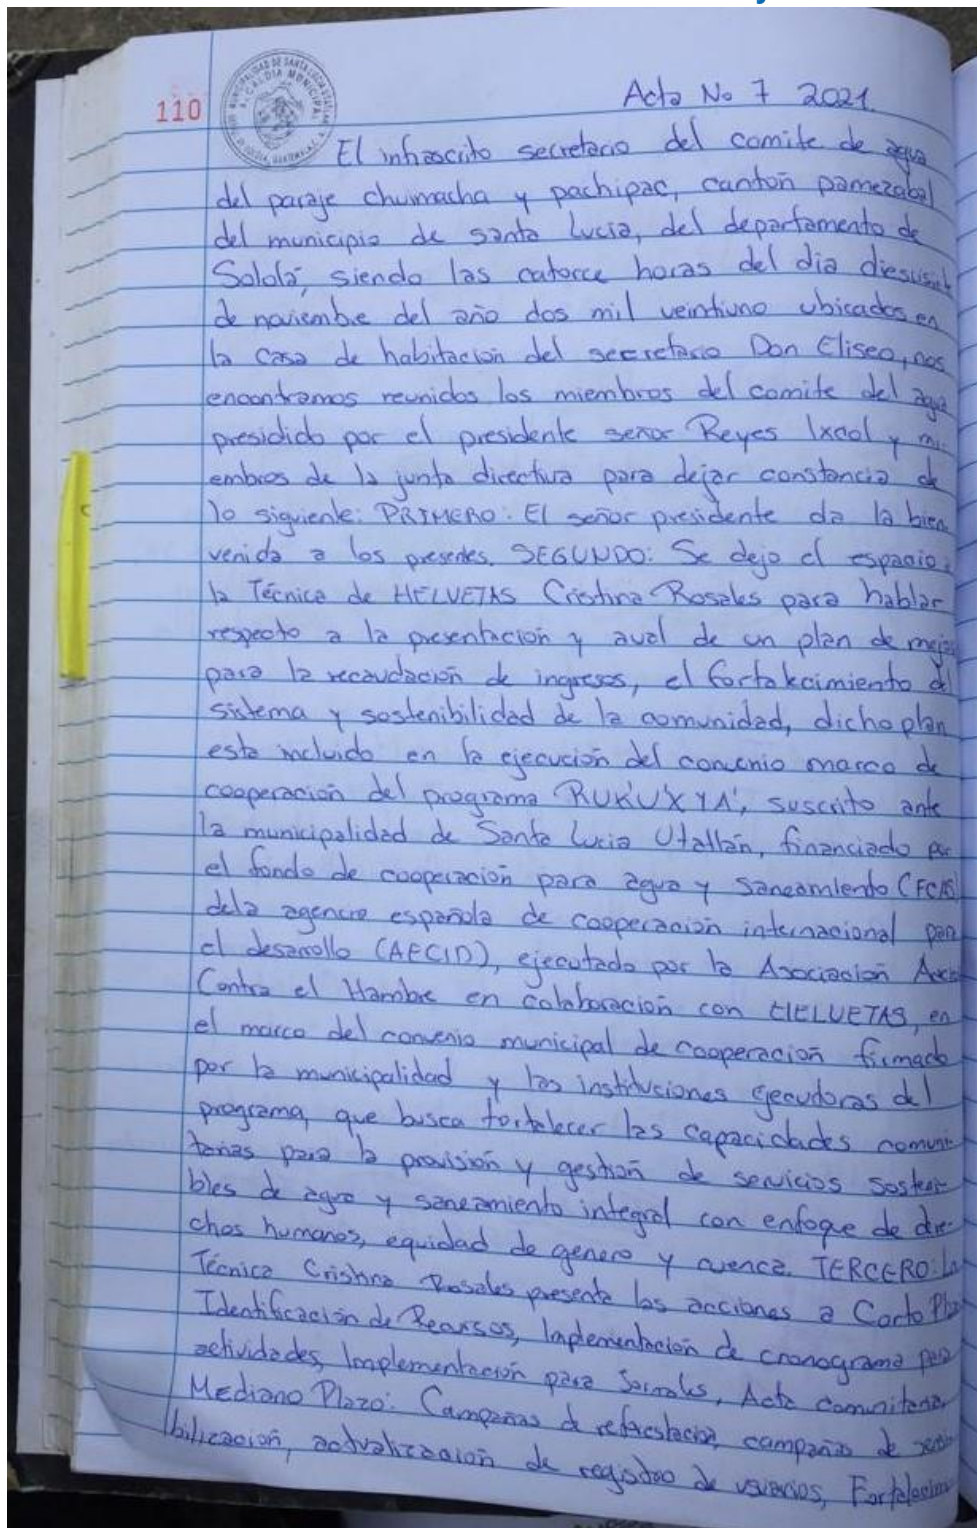 110
MUNICIPALIDAD DE SANTA LUCIA UTATLAN
ALCALDIA MUNICIPAL
SOLOLA, GUATEMALA, C. A.
Acta No 7 2021
El infrascrito secretario del comite de agua
del paraje chuimacha y pachipac, cantón pamezabal
del municipio de santa lucia, del departamento de
Sololá, siendo las catorce horas del dia
de noviembre del año dos mil veintiuno ubicados en
la casa de habitación del secretario Don Eliseo, nos
encontramos reunidos los miembros del comite del agua
presidido por el presidente señor Reyes Ixcol y mi-
embros de la junta directiva para dejar constancia de
lo siguiente: PRIMERO: El señor presidente da la bien
venida a los presedes. SEGUNDO: Se dejo el espacio a
la Técnica de HELVETAS Cristina Rosales para hablar
respecto a la presentación y aval de un plan de
para la recaudación de ingresos, el fortalecimiento del
sistema y sostenibilidad de la comunidad, dicho plan
esta incluido en la ejecución del convenio marco de
cooperación del programa RUK'U'X YA', suscrito ante
la municipalidad de Santa Lucia Utatlán, financiado por
el fondo de cooperación para agua y Saneamiento (FCAS)
dela agencia española de cooperación internacional para
el desarrollo (AECID), ejecutado por la Asociación
Contra el Hambre en colaboración con HELVETAS, en
el marco del convenio municipal de cooperación firmado
por la municipalidad y las instituciones ejecutoras del
programa, que busca fortalecer las capacidades comuni-
tarias para la provisión y gestión de servicios sosteni-
bles de agua y saneamiento integral con enfoque de dere-
chos humanos, equidad de genero y cuenca. TERCERO: La
Técnica Cristina Rosales presenta las acciones a Corto
Identificación de Recursos, Implementación de cronograma para
actividades, Implementación para Jornales, Acta comunitaria,
Mediano Plazo: Campañas de reforestación, campañas de
bilización, actualización de registro de usuarios,